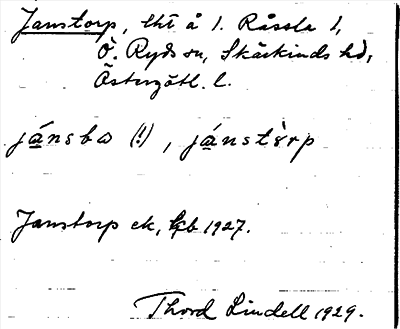 Janstorp, tht å 1. Råssla 1,
Ö. Ryds sn, Skärkinds hd,
Östergötl. l.
jánsba (!), jánstòrp
Janstorp ek, kb 1927.
Thord Lindell 1929.